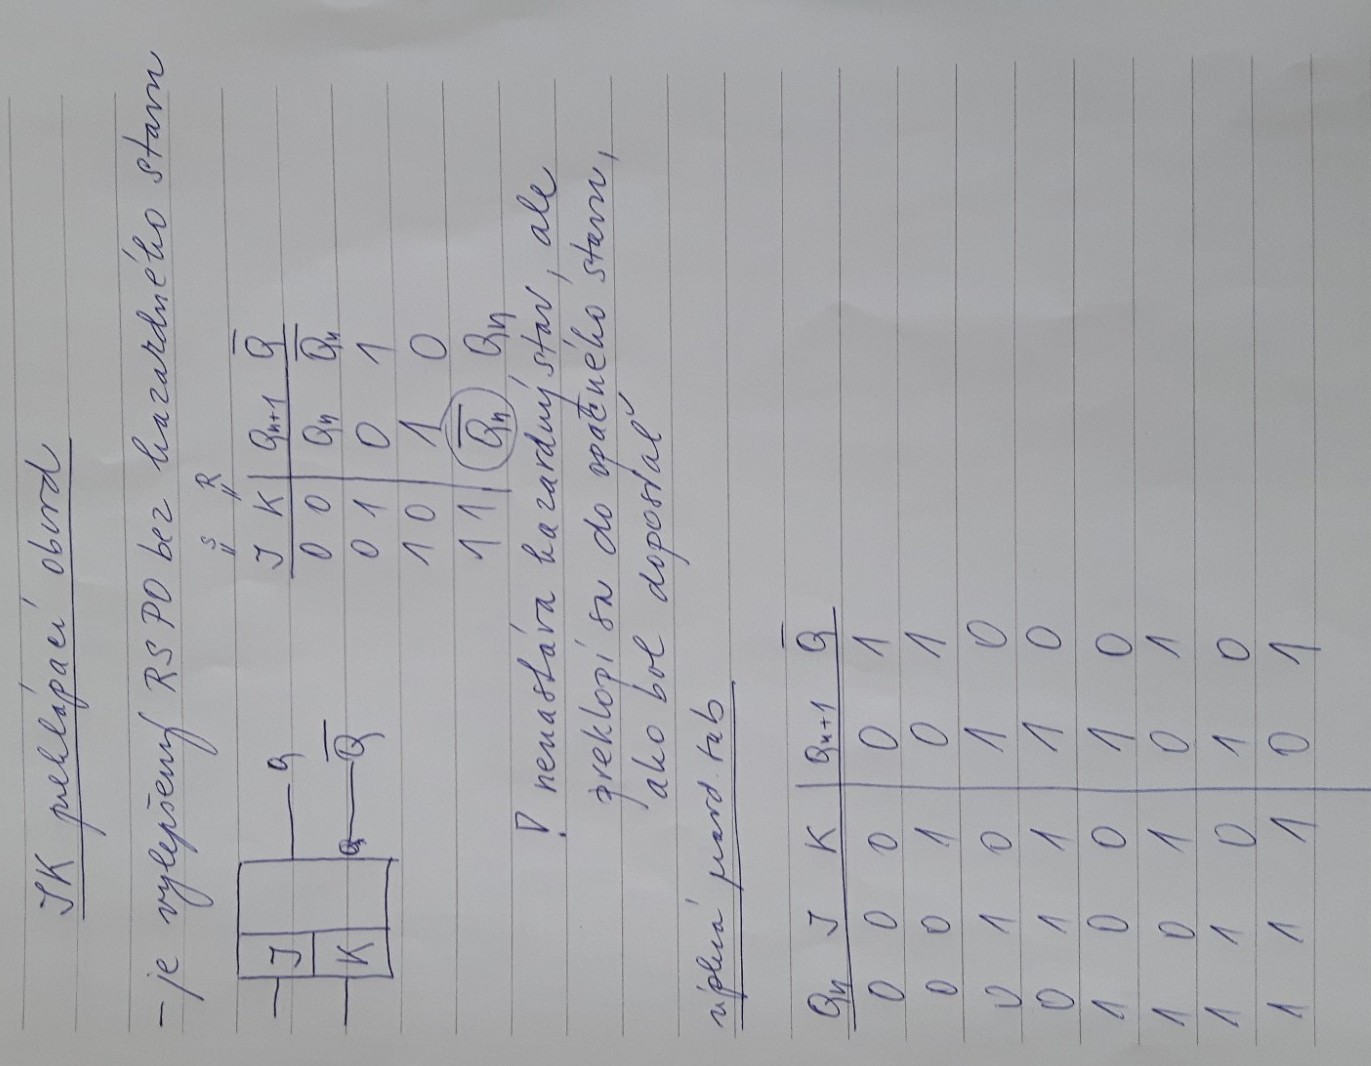 JK preklápací obvod
- je vylepšený RS PO bez hazardného stavu
S R
= =
J K | Qn+1 Q̅
J Q
0 0 | Qn Q̅n
K Q̅
0 1 | 0 1
1 0 | 1 0
1 1 | Q̅n Qn
! nenastáva hazardný stav, ale
preklopí sa do opačného stavu,
ako bol doposiaľ
úplná pravd. tab
Qn J K | Qn+1 Q̅
0 0 0 | 0 1
0 0 1 | 0 1
0 1 0 | 1 0
0 1 1 | 1 0
1 0 0 | 1 0
1 0 1 | 0 1
1 1 0 | 1 0
1 1 1 | 0 1